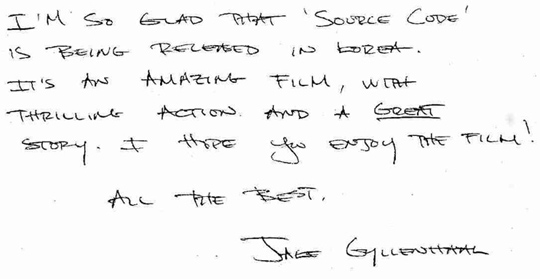 I'M SO GLAD THAT 'SOURCE CODE'
IS BEING RELEASED IN KOREA.
IT'S AN AMAZING FILM, WITH
THRILLING ACTION. AND A GREAT
STORY. I HOPE YOU ENJOY THE FILM!
ALL THE BEST.
JAKE GYLLENHAAL